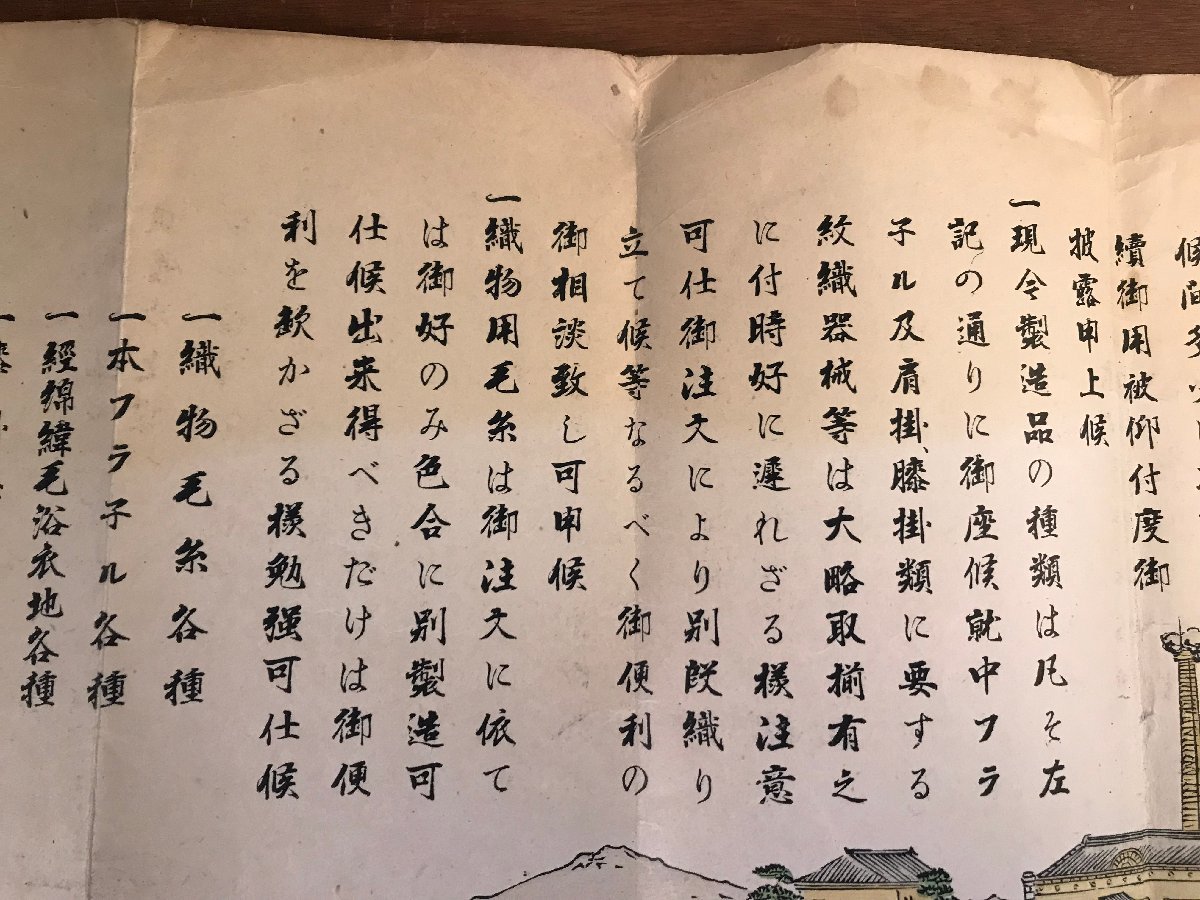 候間多少
續御用被仰付度御
披露申上候
一現今製造品の種類は凡そ左
記の通りに御座候就中フラ
子ル及肩掛、膝掛類に要する
紋織器械等は大略取揃有之
に付時好に遲れざる様注意
可仕御注文により別段織り
立て候等なるべく御便利の
御相談致し可申候
一織物用毛糸は御注文に依て
は御好のみ色合に別製造可
仕候出来得べきだけは御便
利を欽かざる様勉强可仕候
一織物毛糸各種
一本フラ子ル各種
一經綿緯毛浴衣地各種
一